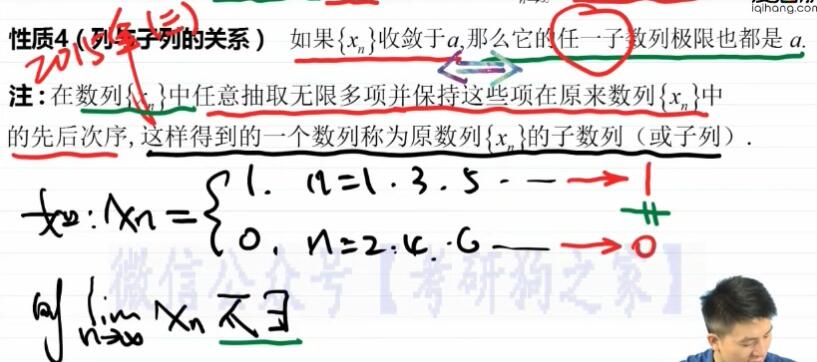 iqihang.com
性质4（列与子列的关系） 如果{xₙ}收敛于a,那么它的任一子数列极限也都是 a.
2015年(三)
注：在数列{xₙ}中任意抽取无限多项并保持这些项在原来数列{xₙ}中
的先后次序,这样得到的一个数列称为原数列{xₙ}的子数列（或子列）.
如: xₙ = { 1. n=1.3.5 ·— → 1
0. n=2.4.6 — → 0
微信公众号【考研狗之家】
则 lim n→∞ xₙ 不∃